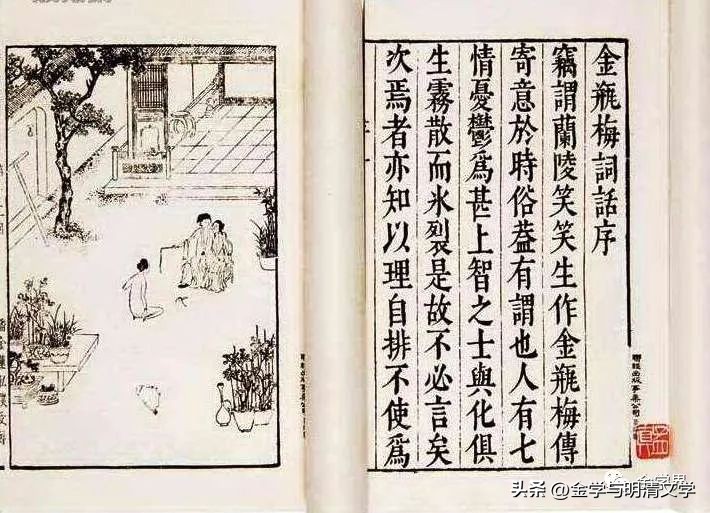 金瓶梅詞話序
竊謂蘭陵笑笑生作金瓶梅傳
寄意於時俗葢有謂也人有七
情憂鬱爲甚上智之士與化俱
生霧散而氷裂是故不必言矣
次焉者亦知以理自排不使爲
聯經出版事業公司
金学界
头条 @金学与明清文学